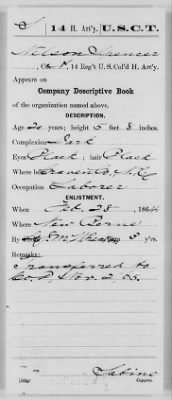 S | 14 H. Art'y. | U.S.C.T.
Nelson Spencer
Co. A, 14 Reg't U. S. Col'd H. Art'y.
Appears on
Company Descriptive Book
of the organization named above.
DESCRIPTION.
Age 20 years; height 5 feet 8 inches.
Complexion Dark
Eyes Black; hair Black
Where born Craven Co, N.C.
Occupation Laborer
ENLISTMENT.
When Feb. 28, 1864
Where New Berne
By term 3 y'rs.
Remarks:
Transferred to
Co. Nov. 2, 65.
Sabine
Copyist.